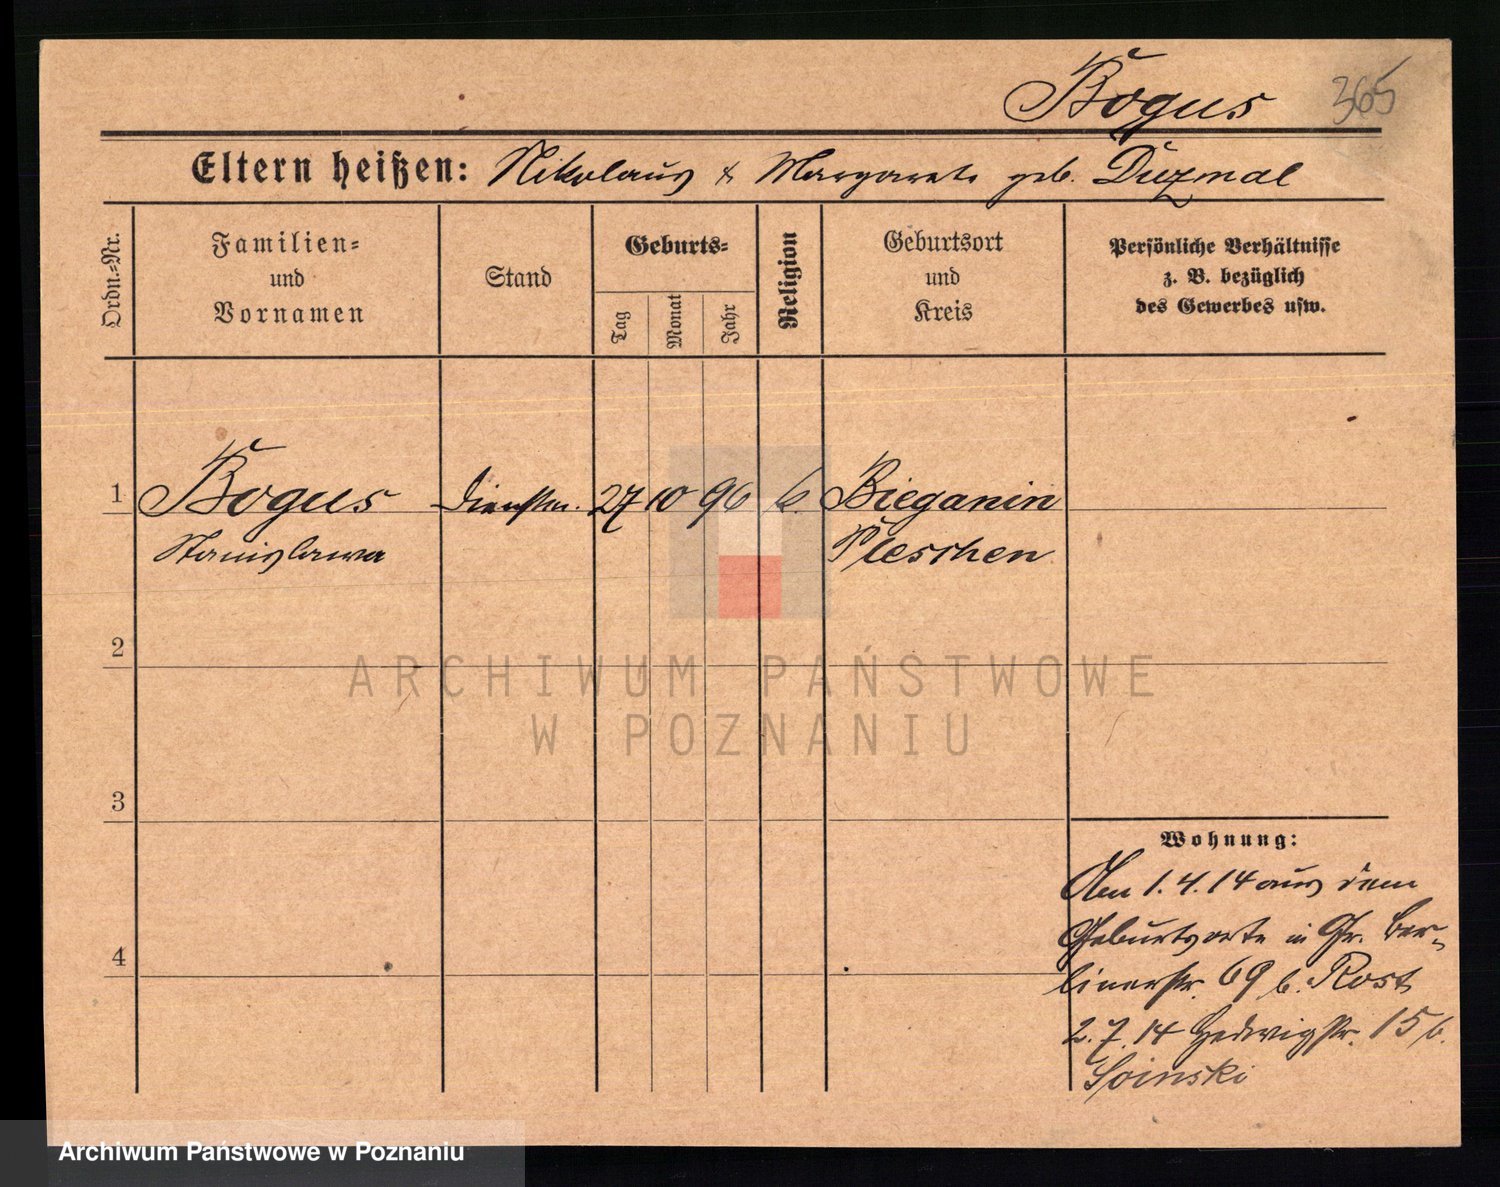 Bogus 365
Eltern heißen: Nikolaus & Margarete geb. Duzmal
Ordn.-Nr.
Familien-
und
Vornamen
Stand
Geburts-
Tag
Monat
Jahr
Religion
Geburtsort
und
Kreis
Persönliche Verhältnisse
z. B. bezüglich
des Gewerbes usw.
1 Bogus Dienstm. 27 10 96 k. Bieganin
Stanislawa Pleschen
2
3
4
Wohnung:
Am 1.4.14 aus dem
Geburtsorte in Gr. Ber-
linerstr. 69 b. Rost
2.7.14 Hedwigstr. 15 b.
Soinski
ARCHIWUM PAŃSTWOWE
W POZNANIU
Archiwum Państwowe w Poznaniu